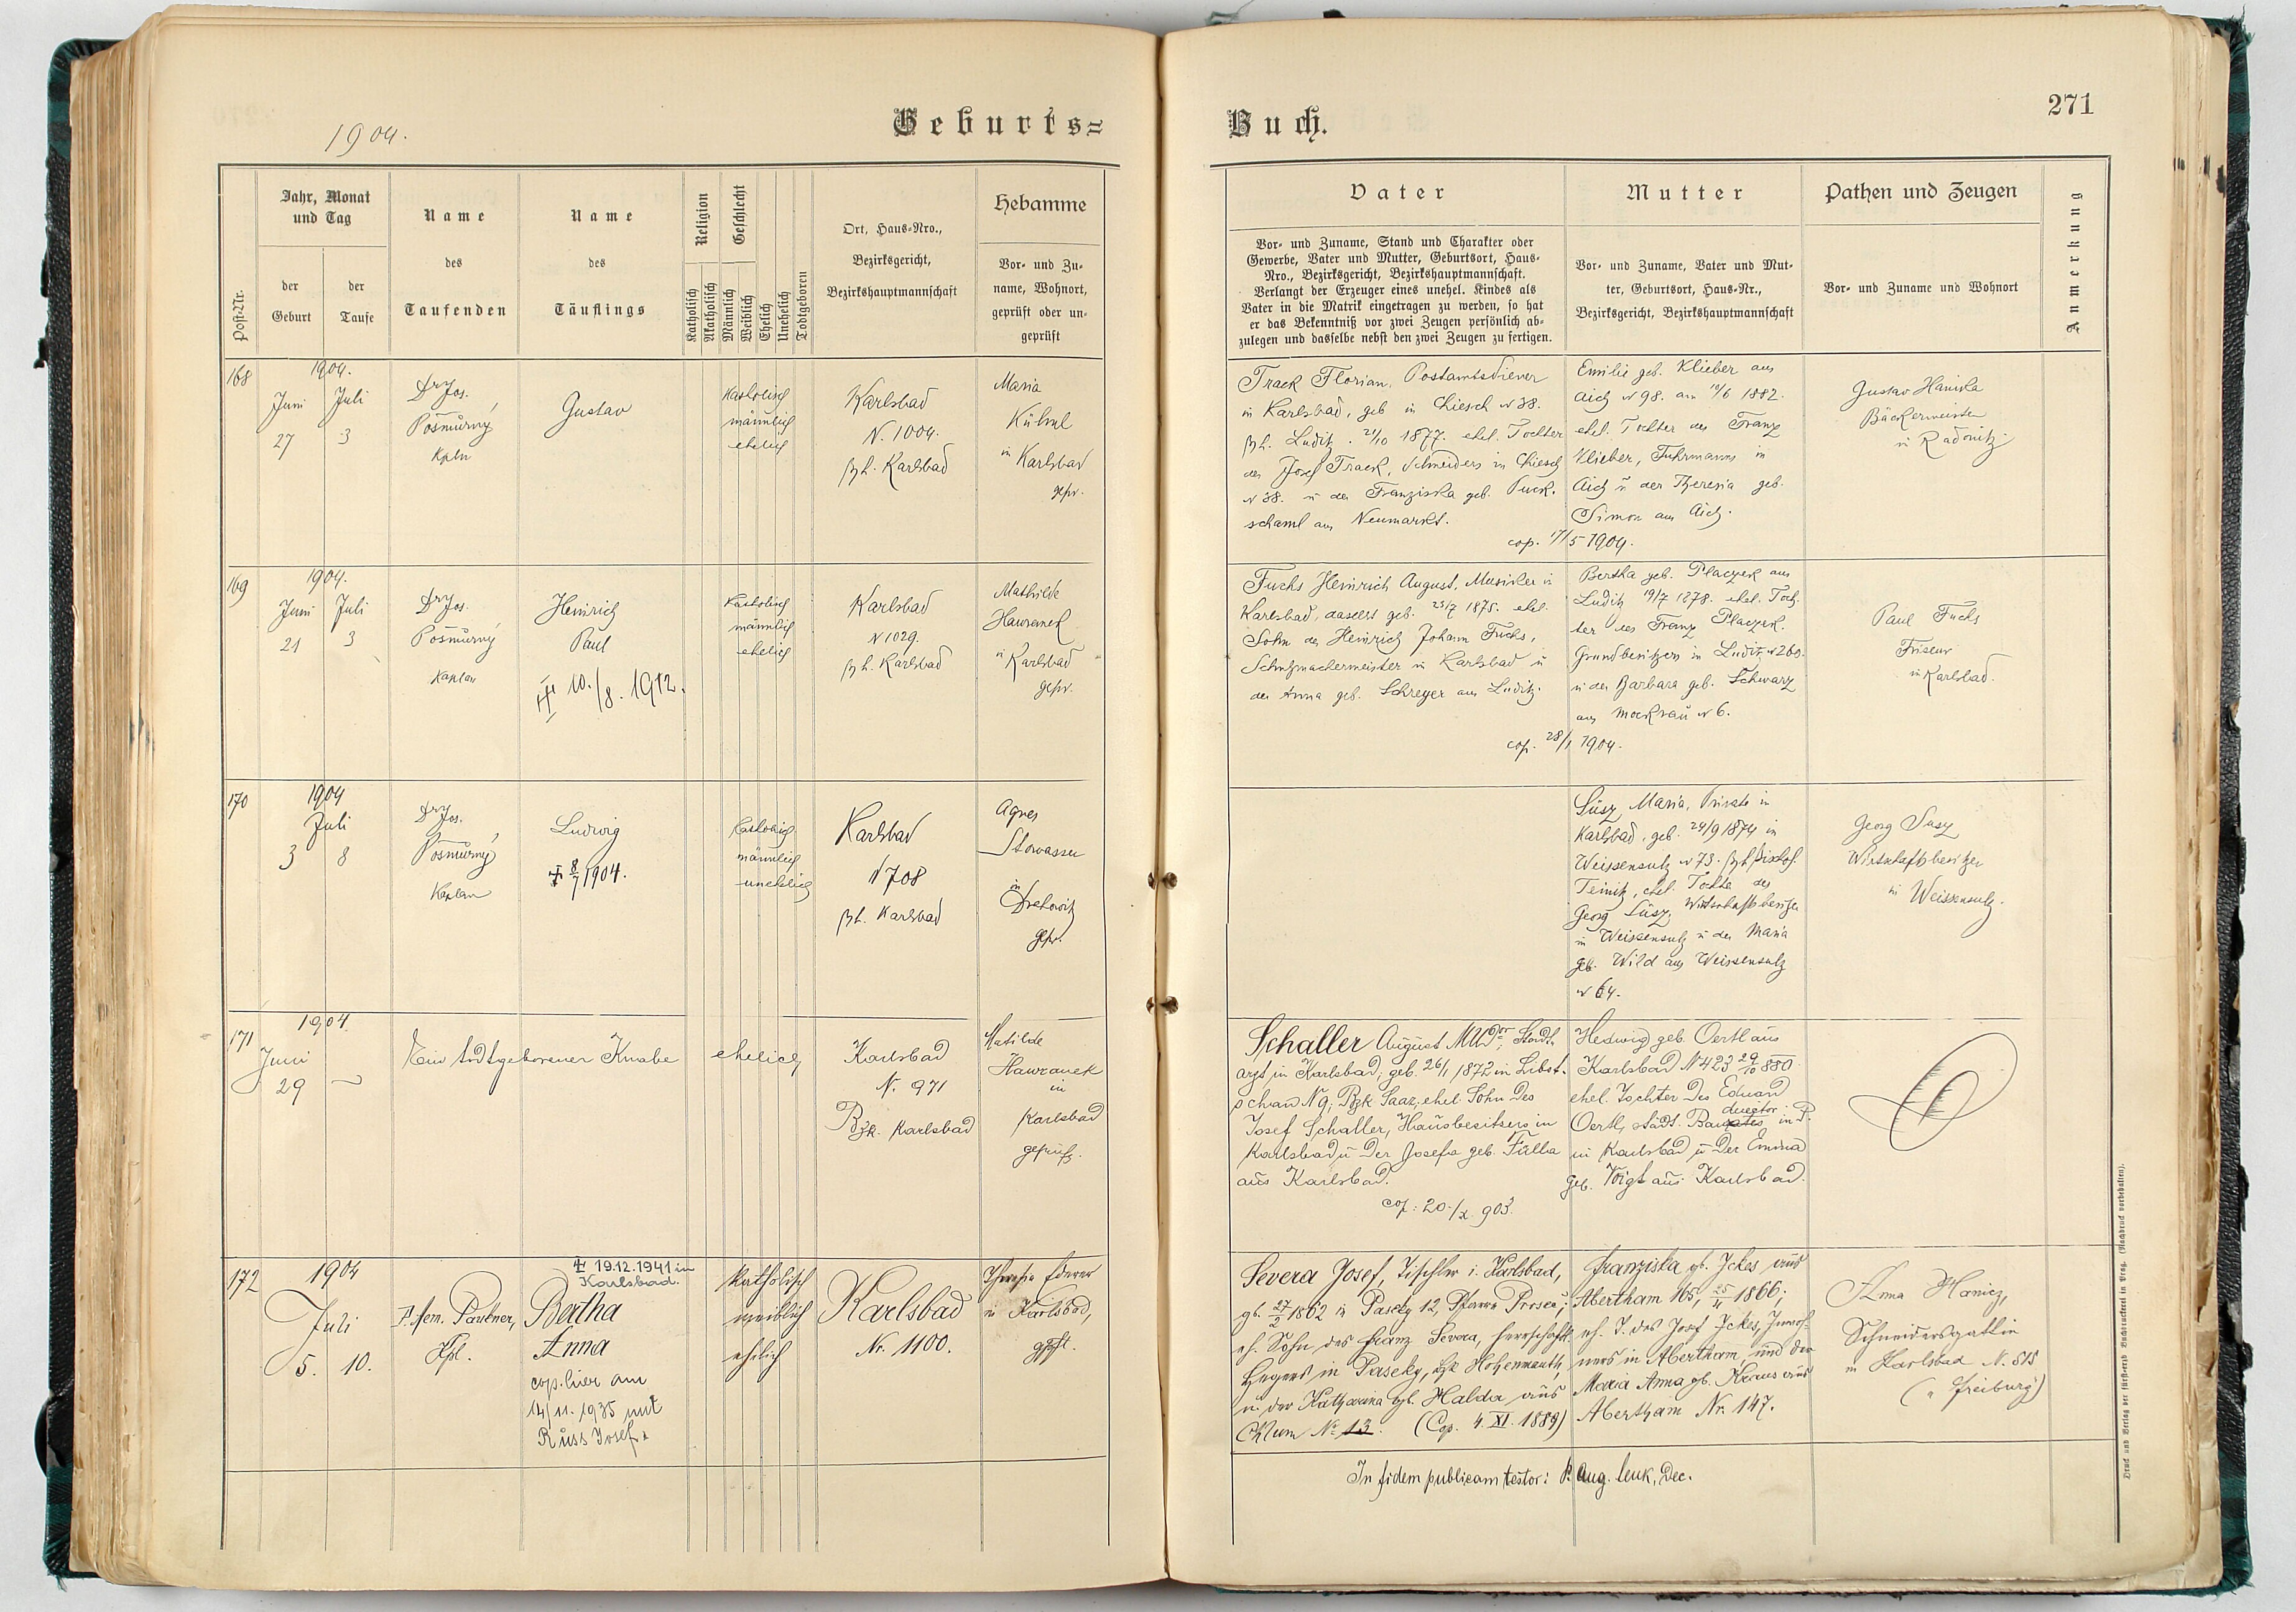 1904.
Geburts=
Buch.
271
Post-Nr.
Jahr, Monat
und Tag
der
Geburt
der
Taufe
Name
des
Taufenden
Name
des
Täuflings
Religion
Katholisch
Akatholisch
Geschlecht
Männlich
Weiblich
Ehelich
Unehelich
Todtgeboren
Ort, Haus-Nro.,
Bezirksgericht,
Bezirkshauptmannschaft
Hebamme
Vor- und Zu-
name, Wohnort,
geprüft oder un-
geprüft
Vater
Vor- und Zuname, Stand und Charakter oder
Gewerbe, Vater und Mutter, Geburtsort, Haus-
Nro., Bezirksgericht, Bezirkshauptmannschaft.
Verlangt der Erzeuger eines unehel. Kindes als
Vater in die Matrik eingetragen zu werden, so hat
er das Bekenntniß vor zwei Zeugen persönlich ab-
zulegen und dasselbe nebst den zwei Zeugen zu fertigen.
Mutter
Vor- und Zuname, Vater und Mut-
ter, Geburtsort, Haus-Nr.,
Bezirksgericht, Bezirkshauptmannschaft
Pathen und Zeugen
Vor- und Zuname und Wohnort
Anmerkung
168
1904.
Juni
27
Juli
3
Dr Jos.
Pošmůrný
Kpln
Gustav
Katholisch
männlich
ehelich
Karlsbad
N. 1004.
Bh. Karlsbad
Maria
Kühnl
in Karlsbad
gepr.
Track Florian, Postamtsdiener
in Karlsbad, geb in Chiesch N 38.
Bh. Luditz. 21/10 1877. ehel. Tochter
des Josef Track, Schneiders in Chiesch
N 38. u der Franziska geb. Puck.
schaml aus Neumarkt.
Emilie geb. Klieber aus
Aich N 98. am 10/6 1882.
ehel. Tochter des Franz
Klieber, Fuhrmanns in
Aich u der Theresia geb.
Simon aus Aich.
cop. 17/5 1904.
Gustav Haniska
Bäckermeister
in Radonitz
169
1904.
Juni
21
Juli
3
Dr Jos.
Pošmůrný
Kaplan
Heinrich
Paul
10./8. 1912.
Katholisch
männlich
ehelich
Karlsbad
N 1029.
Bh. Karlsbad
Mathilde
Hawranek
in Karlsbad
gepr.
Fuchs Heinrich August, Musiker in
Karlsbad, daselbst geb. 25/7 1875. ehel.
Sohn des Heinrich Johann Fuchs,
Schuhmachermeister in Karlsbad u
der Anna geb. Schreyer aus Luditz.
Bertha geb. Placzek aus
Luditz 19/7 1878. ehel. Toch.
ter des Franz Placzek.
Grundbesitzers in Luditz N 260.
u der Barbara geb. Schwarz
aus Mokrau N 6.
cop. 28/1 1904.
Paul Fuchs
Friseur
in Karlsbad.
170
1904
Juli
3
8
Dr Jos.
Pošmůrný
Kaplan
Ludwig
8/7 1904.
Katholisch
männlich
unehelich
Karlsbad
N 708
Bh. Karlsbad
Agnes
Stowasser
in
Drahowitz
gepr.
Süsz Maria, Private in
Karlsbad, geb. 24/9 1874 in
Weissensulz N 73. Bh. Bischof
Teinitz, ehel. Tochter des
Georg Süsz, Wirtschaftsbesitzer
in Weissensulz u der Maria
geb. Wild aus Weissensulz
N 64.
Georg Süsz
Wirtschaftsbesitzer
in Weissensulz.
171
1904.
Juni
29
Ein todtgeborener Knabe
ehelich
Karlsbad
N. 971
Bzk. Karlsbad
Matilde
Hawranek
in
Karlsbad
geprüft.
Schaller August MUDor, Stadt.
arzt in Karlsbad, geb. 26/1 1872 in Libot-
schan N 9; Bzk Saaz, ehel. Sohn des
Josef Schaller, Hausbesitzers in
Karlsbad u. der Josefa geb. Fülla
aus Karlsbad.
cop: 20./X. 903.
Hedwig geb. Oertl aus
Karlsbad N 423 29/10 880
ehel. Tochter des Eduard
director
Oertl, städt. in P.
in Karlsbad u. der Emma
geb. Voigt aus Karlsbad.
172
1904
Juli
5.
10.
Paulner,
Kpl.
19.12.1941 in
Karlsbad.
Bertha
Anna
cop. hier am
14/11. 1935 mit
Russ Josef.
katholisch
weiblich
ehelich
Karlsbad
Nr. 1100.
Theresia Ederer
in Karlsbad,
gepft.
Severa Josef, Tischler i. Karlsbad,
gb. 27/2 1862 in Paseky 12, Pfarre Proseč;
eh. Sohn des Franz Severa, herrschaftl.
Hegers in Paseky, Bzk Hohenmauth,
u. der Katharina gb. Halda aus
Chlum No 13. (Cop. 4. XI. 1889)
Franziska gb. Ickes aus
Abertham 165, 25/11 1866;
eh. T. des Josef Ickes,
in Abertham, und der
Maria Anna gb. Kraus aus
Abertham Nr. 147.
Anna Hanicz,
Schneidersgattin
in Karlsbad N. 815
(" Freiburg")
In fidem publicam testor: P. Aug. Zenk, Dec.
Druck und Verlag der fürsterzb. Buchdruckerei in Prag. (Nachdruck vorbehalten).